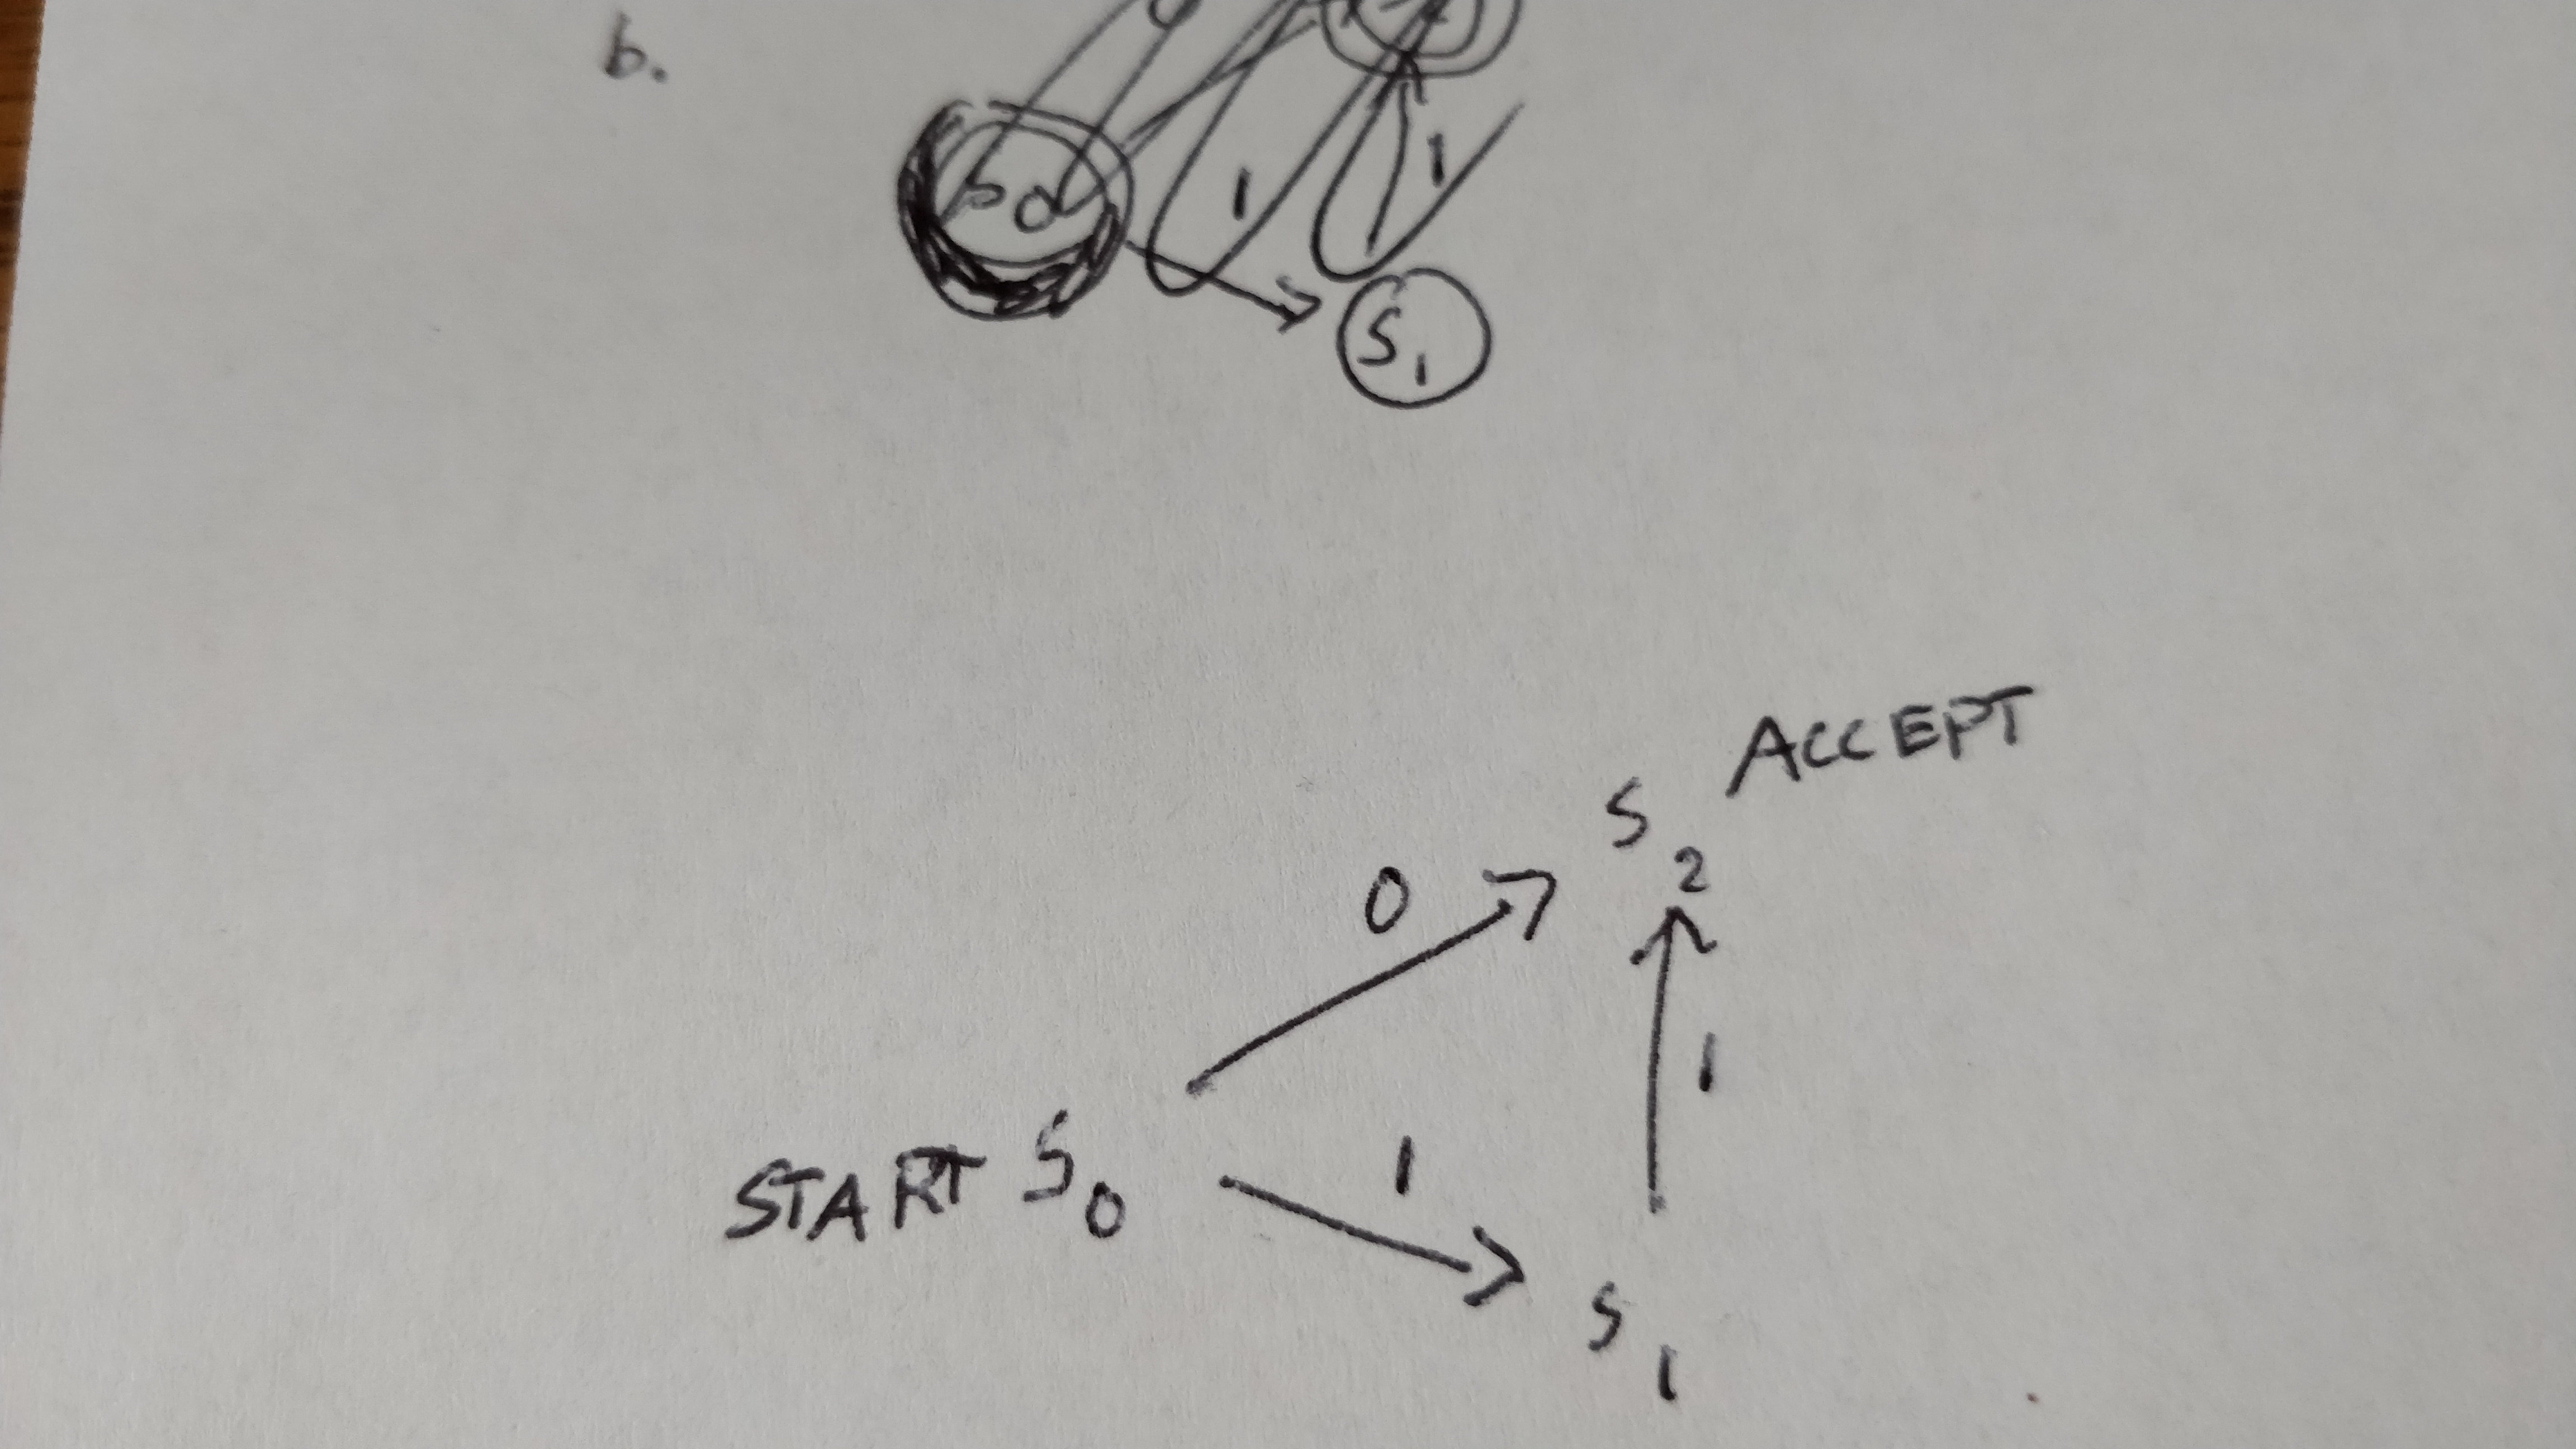 b.
S0
1
1
S1
ACCEPT
S2
0
1
1
START S0
S1